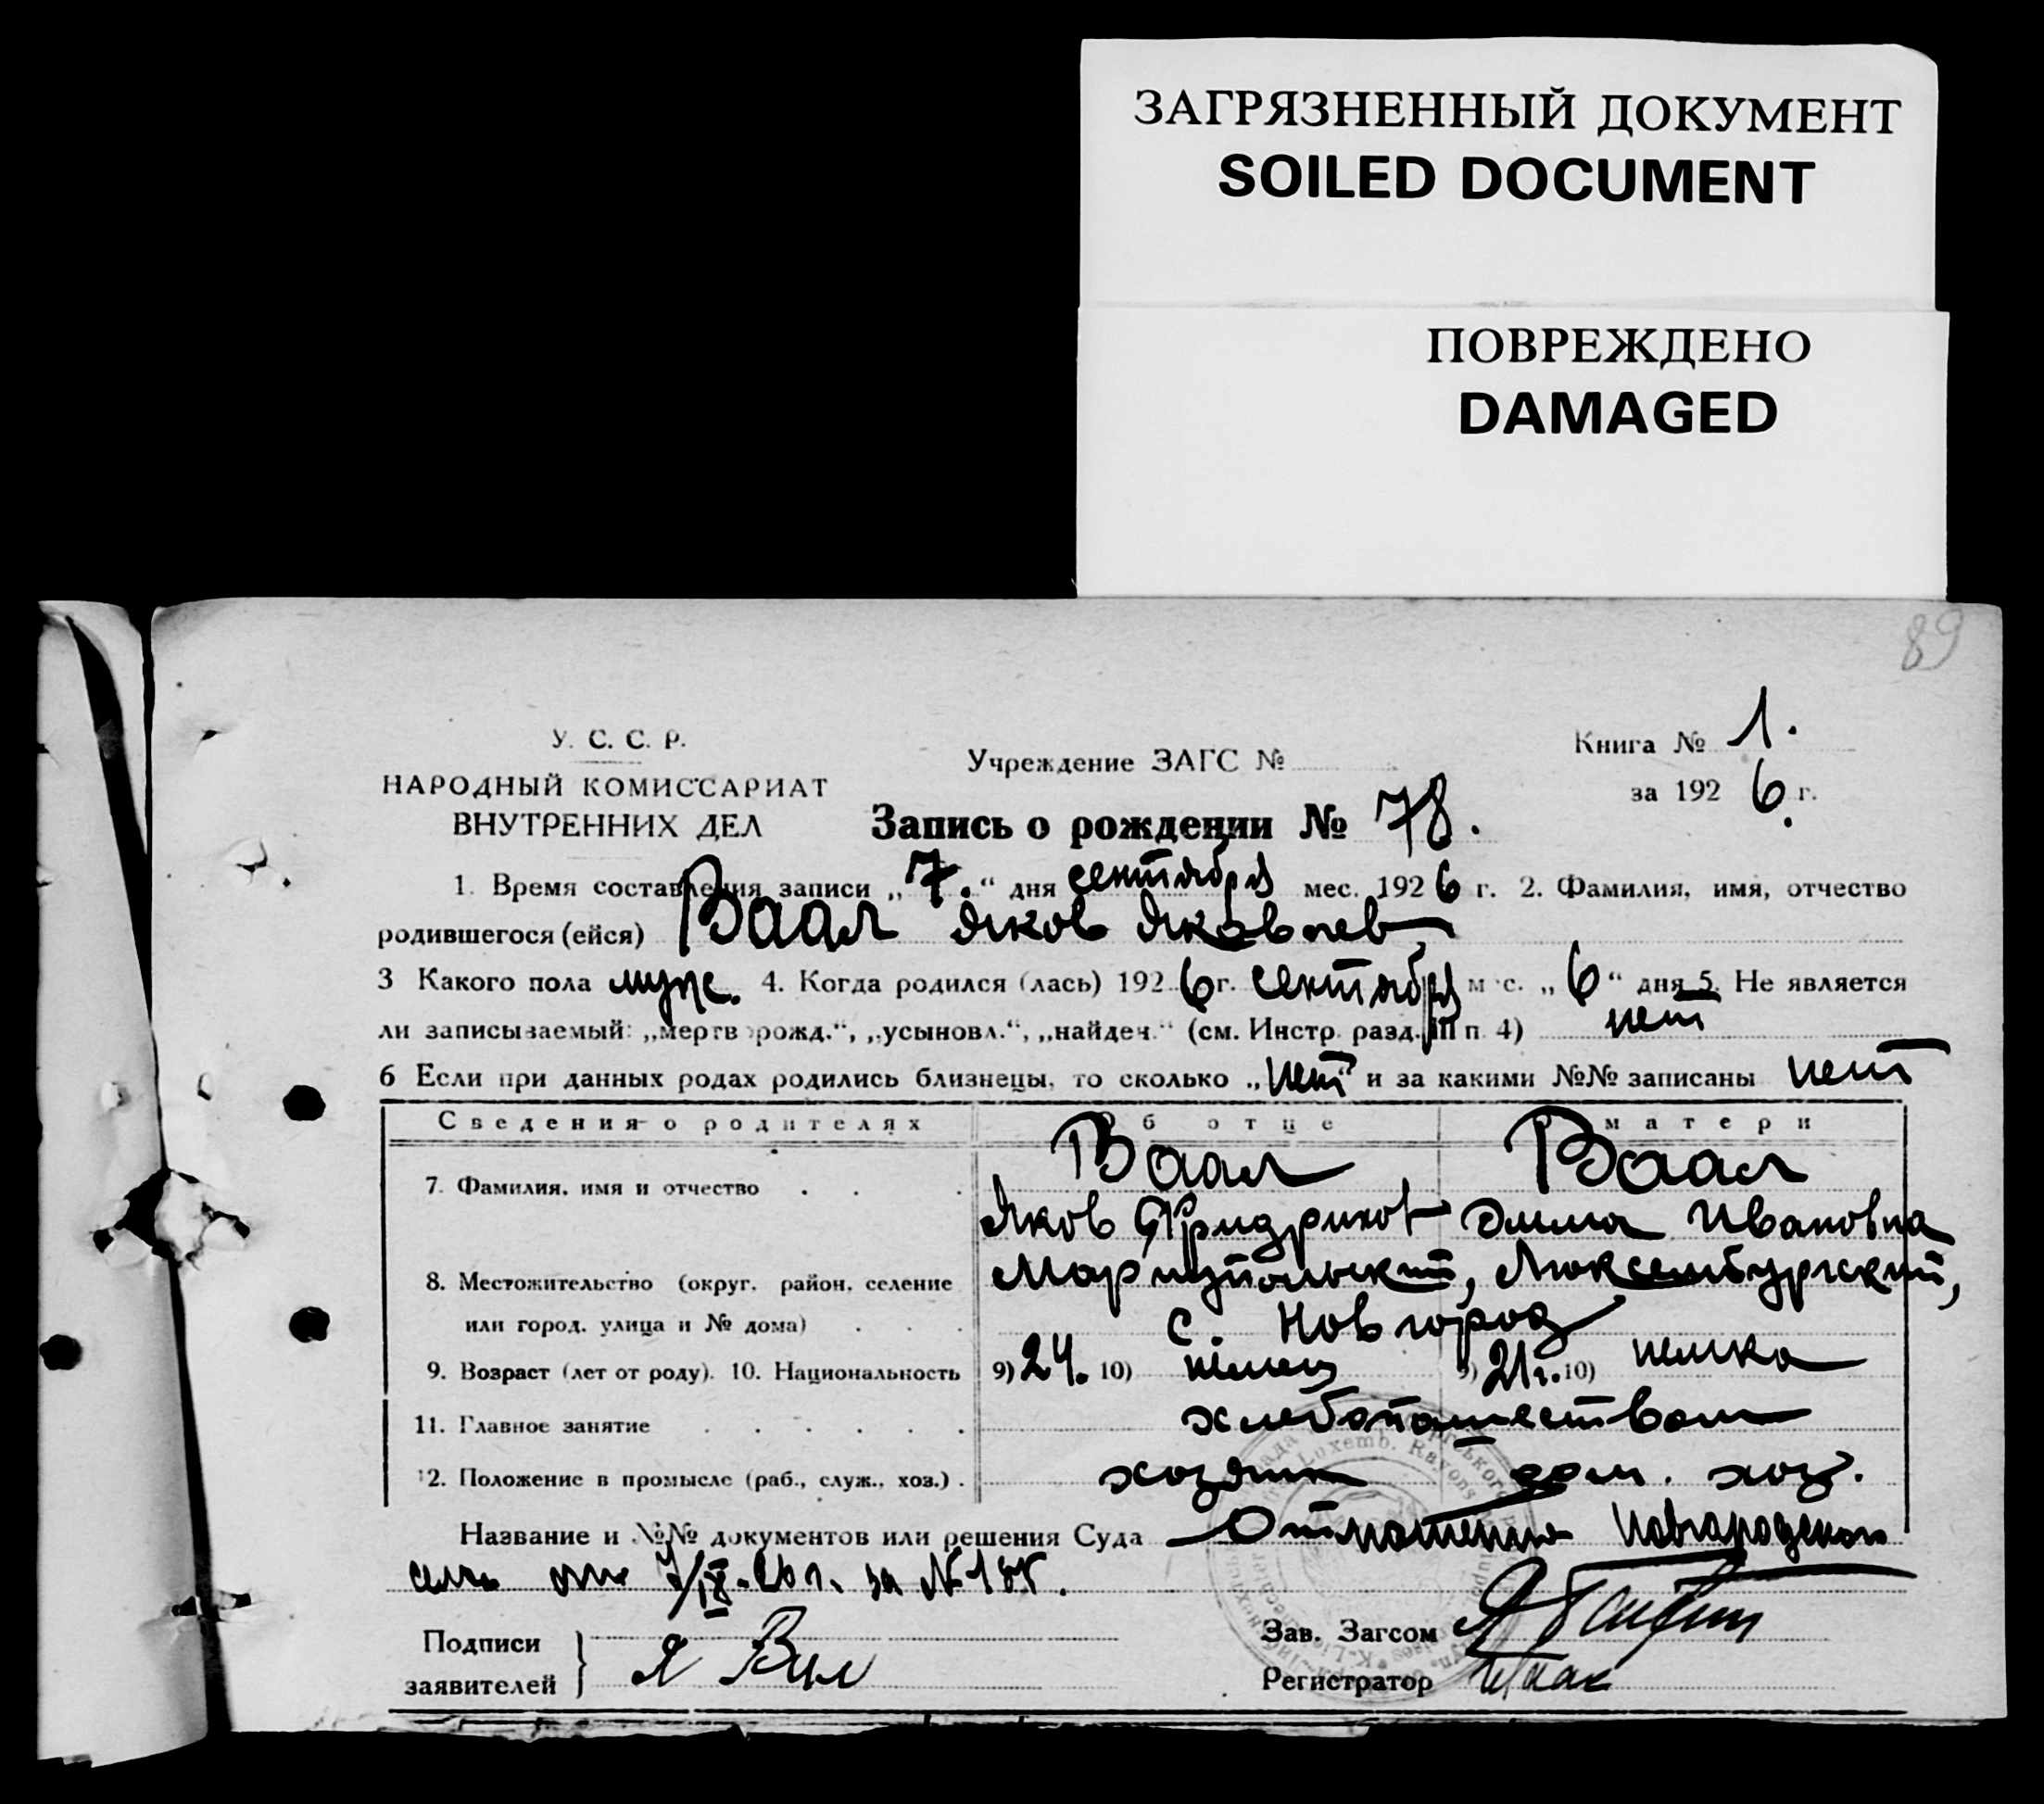 ЗАГРЯЗНЕННЫЙ ДОКУМЕНТ
SOILED DOCUMENT
ПОВРЕЖДЕНО
DAMAGED
89
У. С. С. Р.
НАРОДНЫЙ КОМИССАРИАТ
ВНУТРЕННИХ ДЕЛ
Учреждение ЗАГС №
Книга № 1.
за 1926 г.
Запись о рождении № 78.
1. Время составления записи „7.“ дня сентября мес. 1926 г. 2. Фамилия, имя, отчество
родившегося (ейся) Ваал Яков Яковлев
3 Какого пола муж. 4. Когда родился (лась) 1926 г. сентября м с. „6“ дня 5. Не является
ли записываемый: „мертворожд.“, „усыновл.“, „найден.“ (см. Инстр. разд. III п. 4) нет
6 Если при данных родах родились близнецы, то сколько „нет“ и за какими №№ записаны нет
Сведения о родителях Об отце О матери
7. Фамилия, имя и отчество . . . Ваал Ваал
Яков Фридрихов Эмма Ивановна
8. Местожительство (округ, район, селение Мариупольский, Люксембургский,
или город, улица и № дома) . . . с. Новгород
9. Возраст (лет от роду). 10. Национальность 9) 24. 10) немец 9) 21 г. 10) немка
11. Главное занятие . . . . . . хлебопашеством
12. Положение в промысле (раб., служ., хоз.) . хозяин дом. хоз.
Название и №№ документов или решения Суда Отношение Новгородского
от 7/IX-26 г. за №
Подписи
заявителей } Я Ваал
Зав. Загсом
Регистратор